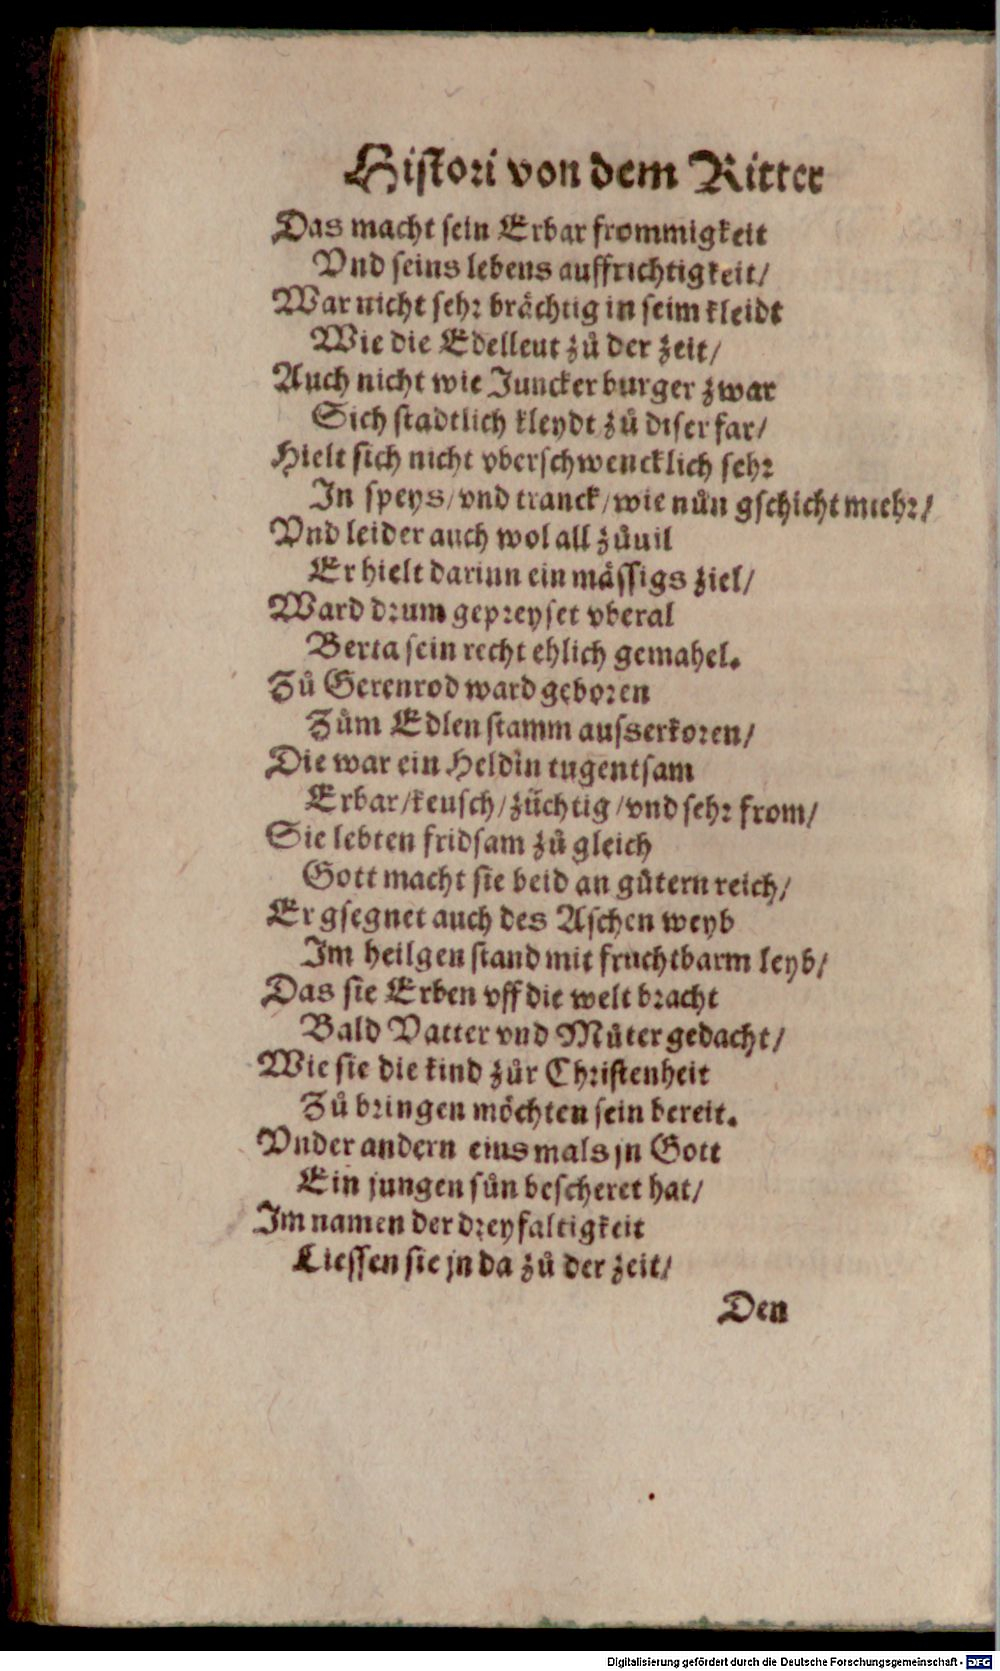 Histori von dem Ritter
Das macht sein Erbar frommigkeit
Vnd seins lebens auffrichtigkeit/
War nicht sehr brächtig in seim kleidt
Wie die Edelleut zů der zeit/
Auch nicht wie Juncker burger zwar
Sich stadtlich kleydt zů diser far/
Hielt sich nicht vberschwencklich sehr
In speys/vnd tranck/wie nůn gschicht mehr/
Vnd leider auch wol all zůuil
Er hielt darinn ein mässigs ziel/
Ward drum gepreyset vberal
Berta sein recht ehlich gemahel.
Zů Gerenrod ward geboren
Zům Edlen stamm ausserkoren/
Die war ein Heldin tugentsam
Erbar/keusch/züchtig/vnd sehr from/
Sie lebten fridsam zů gleich
Gott macht sie beid an gůtern reich/
Er gsegnet auch des Aschen weyb
Im heilgen stand mit fruchtbarm leyb/
Das sie Erben vff die welt bracht
Bald Vatter vnd Můter gedacht/
Wie sie die kind zůr Christenheit
Zů bringen möchten sein bereit.
Vnder andern eins mals jn Gott
Ein jungen sůn bescheret hat/
Im namen der dreyfaltigkeit
Liessen sie jn da zů der zeit/
Den
Digitalisierung gefördert durch die Deutsche Forschungsgemeinschaft - DFG